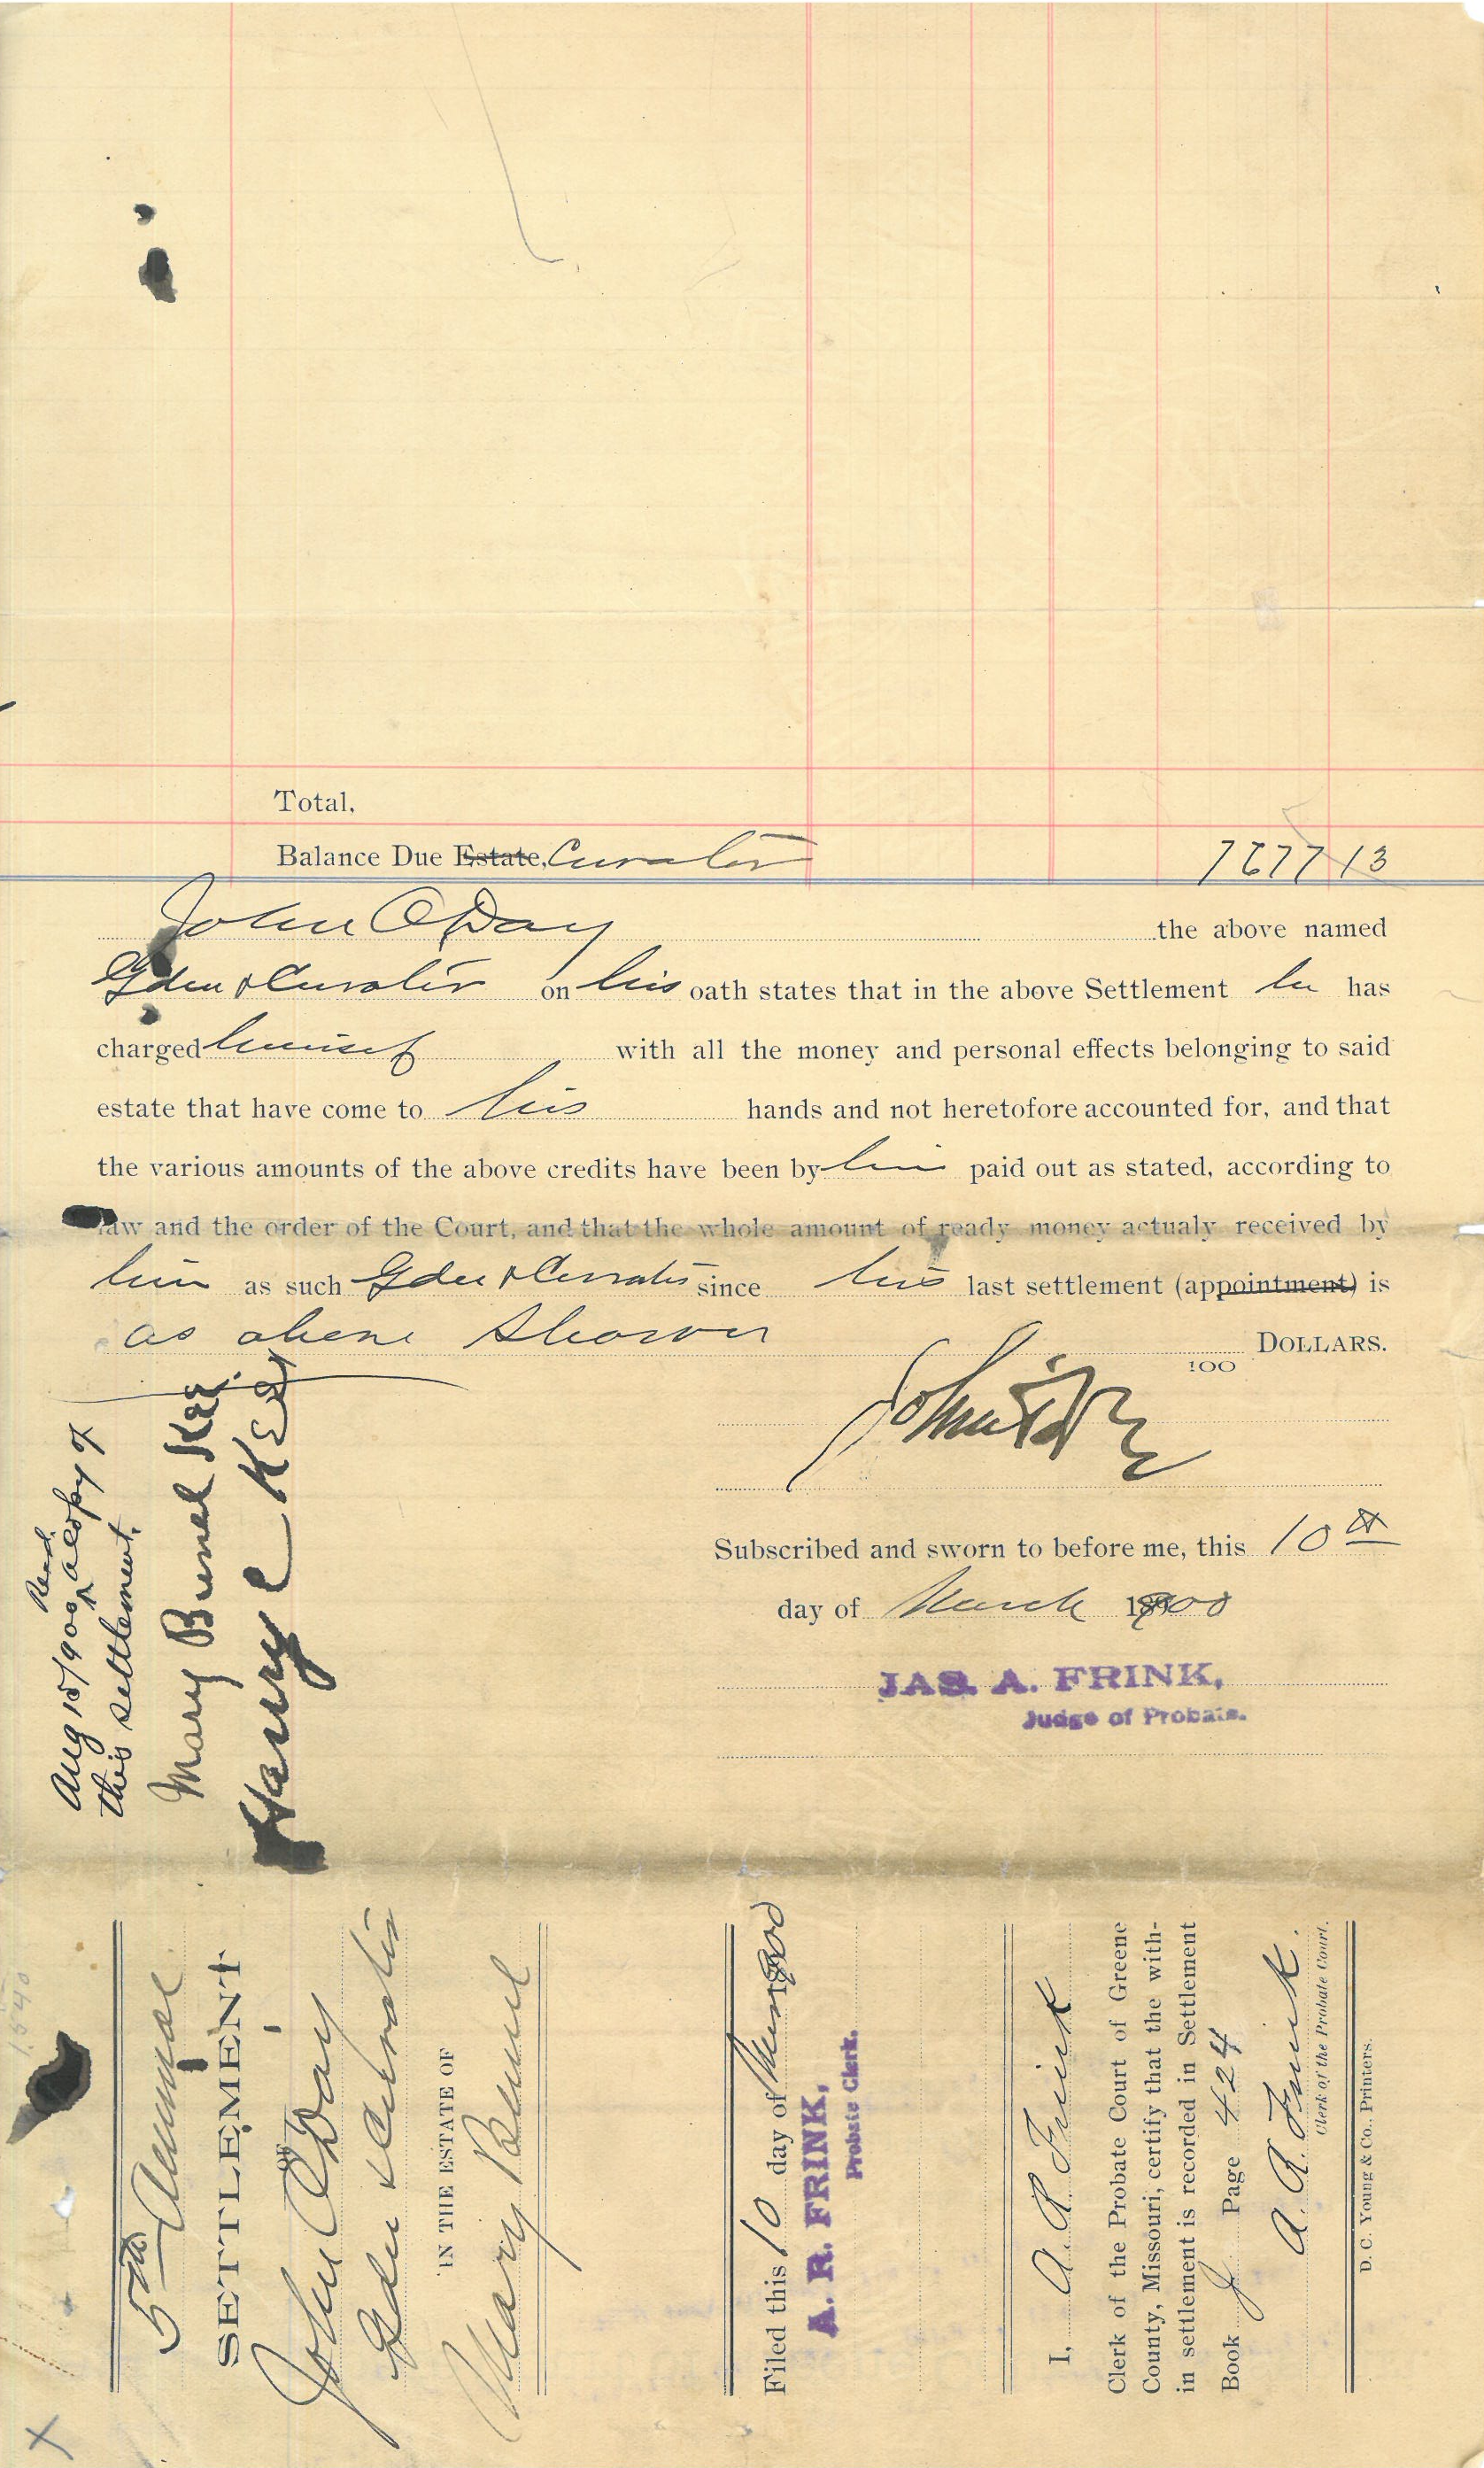 Total,
Balance Due Estate, Curator 7677 13
John O'Day the above named
Gdn & Curator on his oath states that in the above Settlement he has
charged himself with all the money and personal effects belonging to said
estate that have come to his hands and not heretofore accounted for, and that
the various amounts of the above credits have been by him paid out as stated, according to
law and the order of the Court, and that the whole amount of ready money actualy received by
him as such Gdn & Curator since his last settlement (appointment) is
as above shown
100 DOLLARS.
John O'Day
Subscribed and sworn to before me, this 10th
day of March 1900
JAS. A. FRINK,
Judge of Probate.
Aug 15/900 Recd a copy of
this settlement.
Mary Bunel
Harry
5th Annual
SETTLEMENT
OF
John O'Day
Gdn & Curator
IN THE ESTATE OF
Mary Bunel
Filed this 10 day of Mar 1900
A. R. FRINK,
Probate Clerk.
I, A R Frink
Clerk of the Probate Court of Greene
County, Missouri, certify that the with-
in settlement is recorded in Settlement
Book J Page 424
A. R. Frink.
Clerk of the Probate Court.
D. C. Young & Co., Printers.